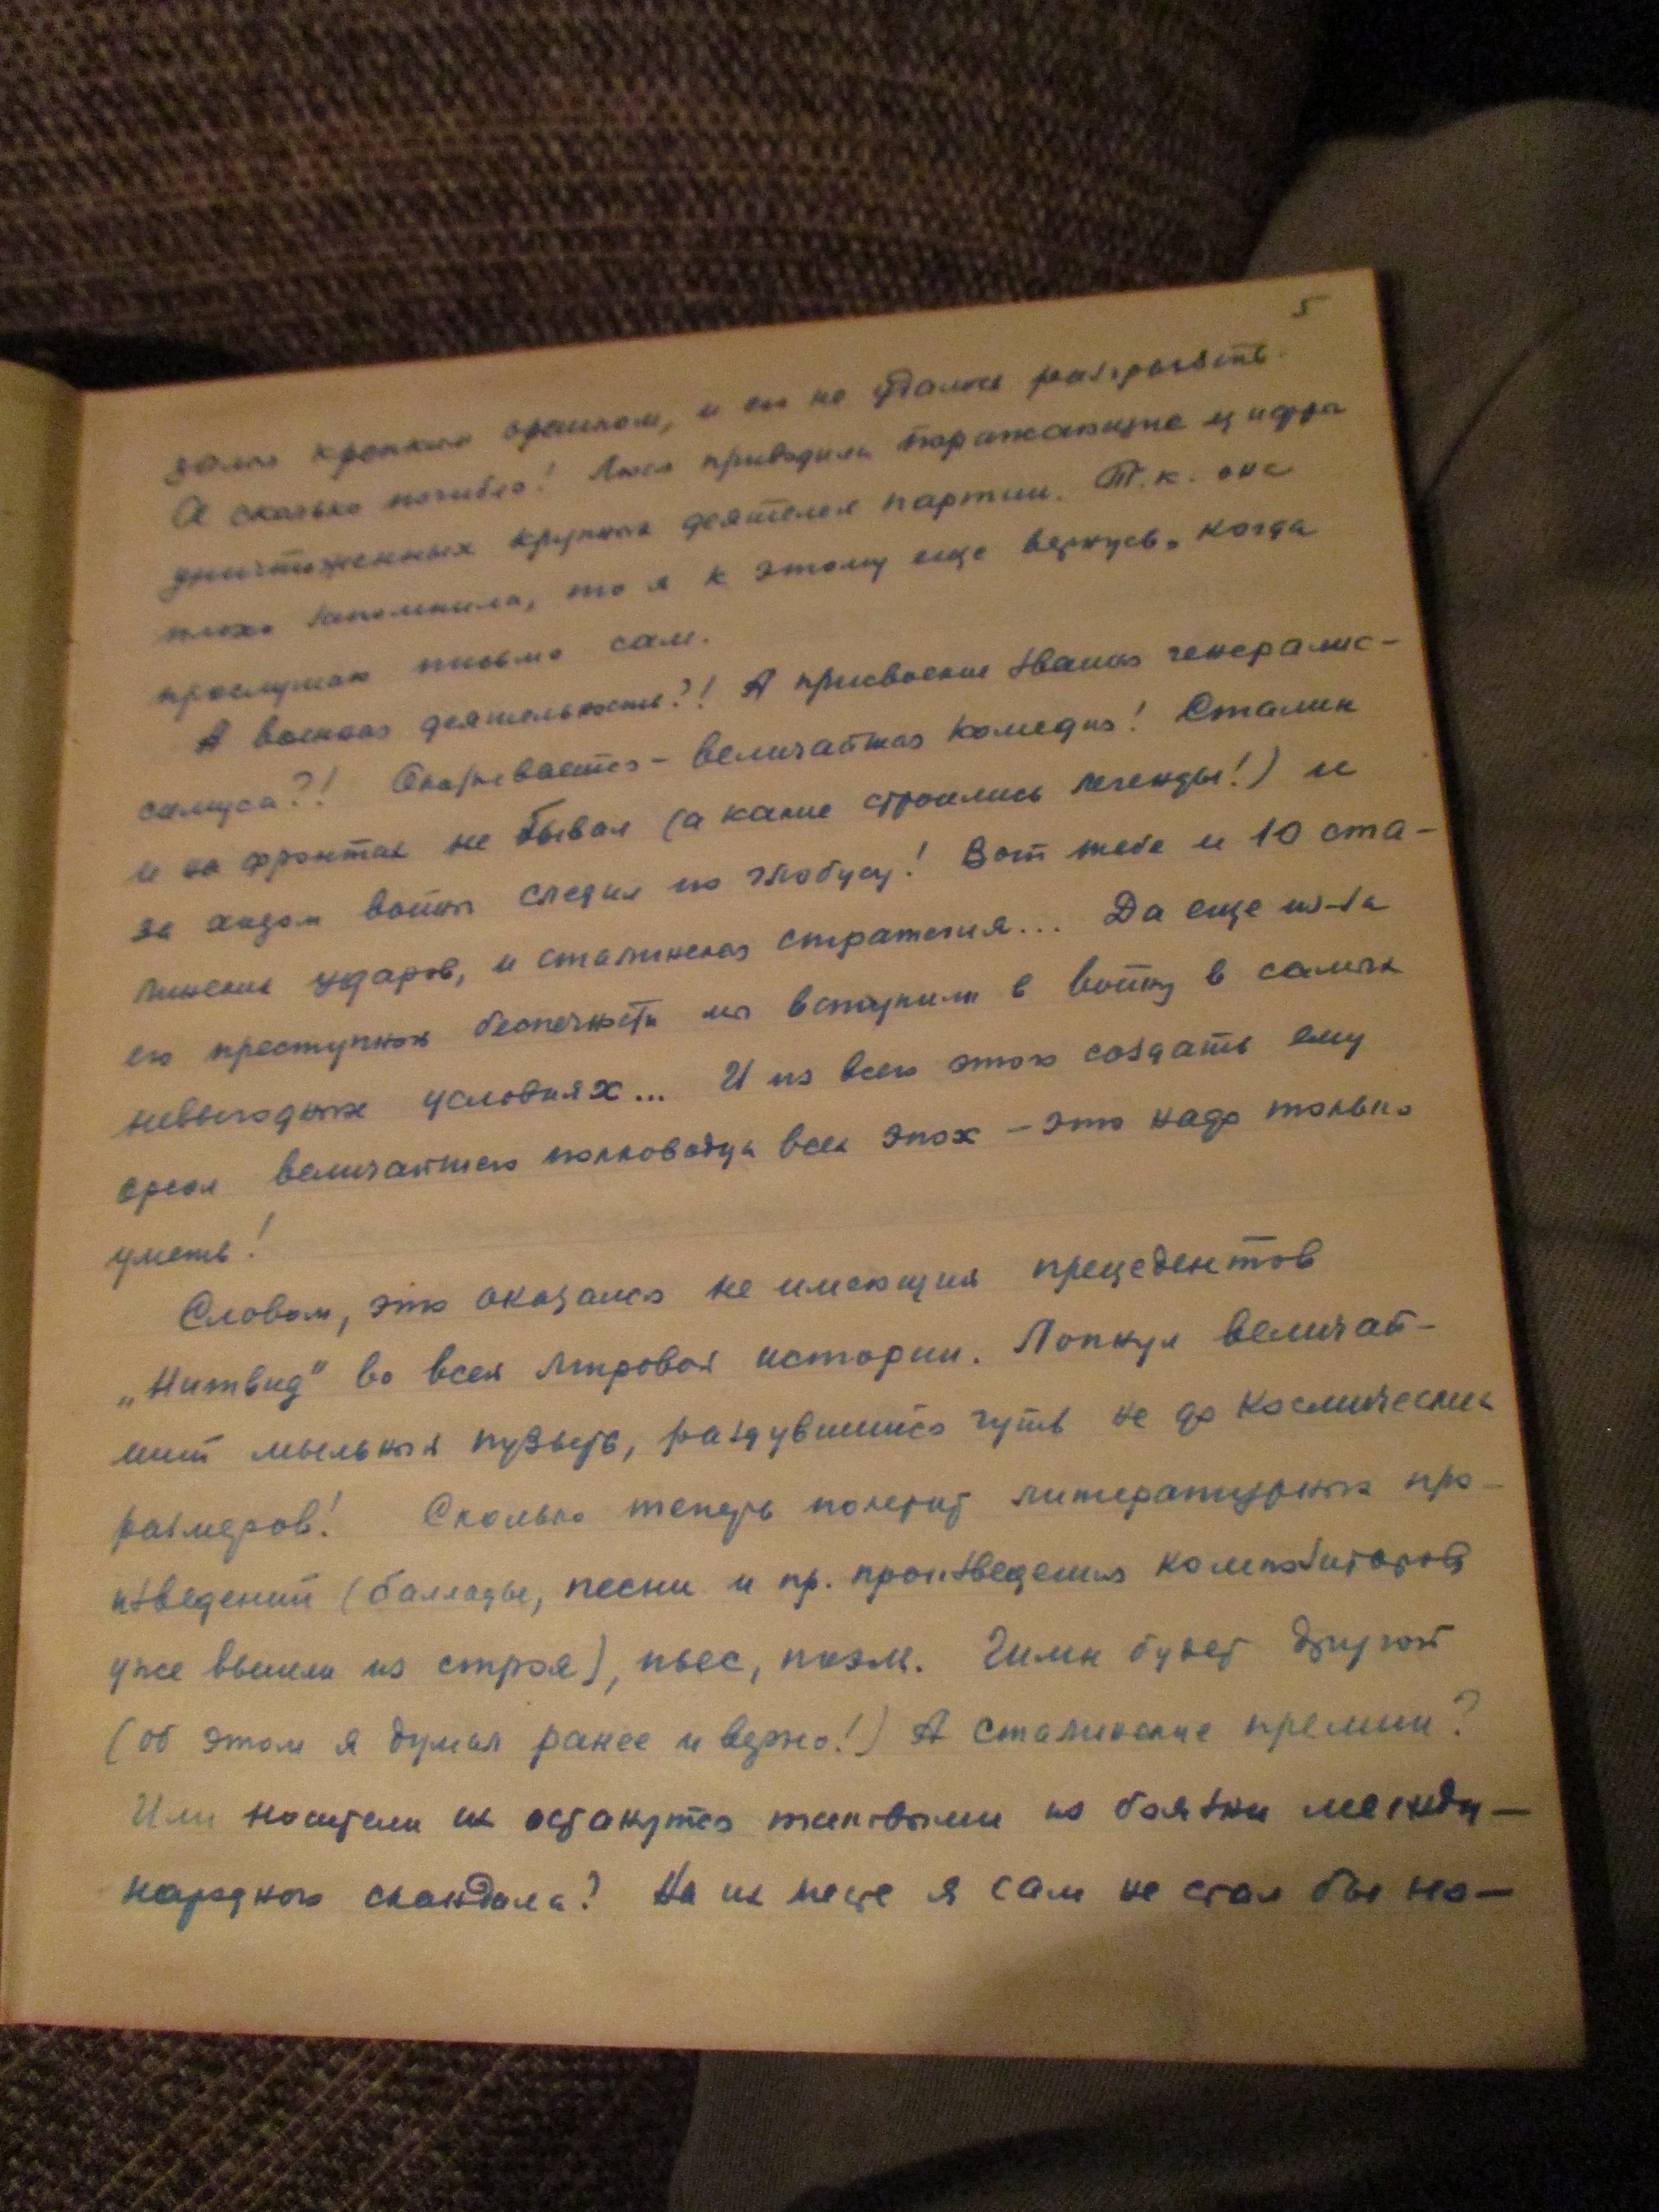 5
крепким орешком, и его не удалось разгрызть.
А сколько погибло! Люся приводила поражающие цифры
уничтоженных крупных деятелей партии. Т.к. она
плохо запомнила, то я к этому еще вернусь, когда
прослушаю письмо сам.
А военная деятельность?! А присвоение звания генералис-
симуса?! Оказывается - величайшая комедия! Сталин
и на фронтах не бывал (а какие строились легенды!) и
за ходом войны следил по глобусу! Вот тебе и 10 ста-
линских ударов, и сталинская стратегия... Да еще из-за
его преступной беспечности мы вступили в войну в самых
невыгодных условиях... И из всего этого создать ему
ореол величайшего полководца всех эпох - это надо только
уметь!
Словом, это оказался не имеющий прецедентов
„Нитвид" во всей мировой истории. Лопнул величай-
ший мыльный пузырь, раздувшийся чуть не до космических
размеров! Сколько теперь полетит литературных про-
изведений (баллады, песни и пр. произведения композиторов
уже вышли из строя), пьес, поэм. Гимн будет другой
(об этом я думал ранее и верно!) А Сталинские премии?
Или носители их останутся таковыми из боязни между-
народного скандала? На их месте я сам не стал бы но-